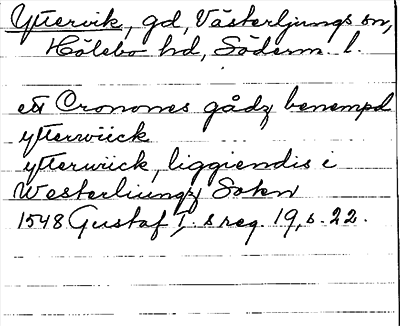 Yttervik, gd, Västerljungs sn,
Hölebo hd, Söderm. l.
ett Cronones gådz benempd
ytterwiick
ytterwiick, liggiendis i
Westerliungz Sokn
1548 Gustaf I:s reg. 19, s. 22.